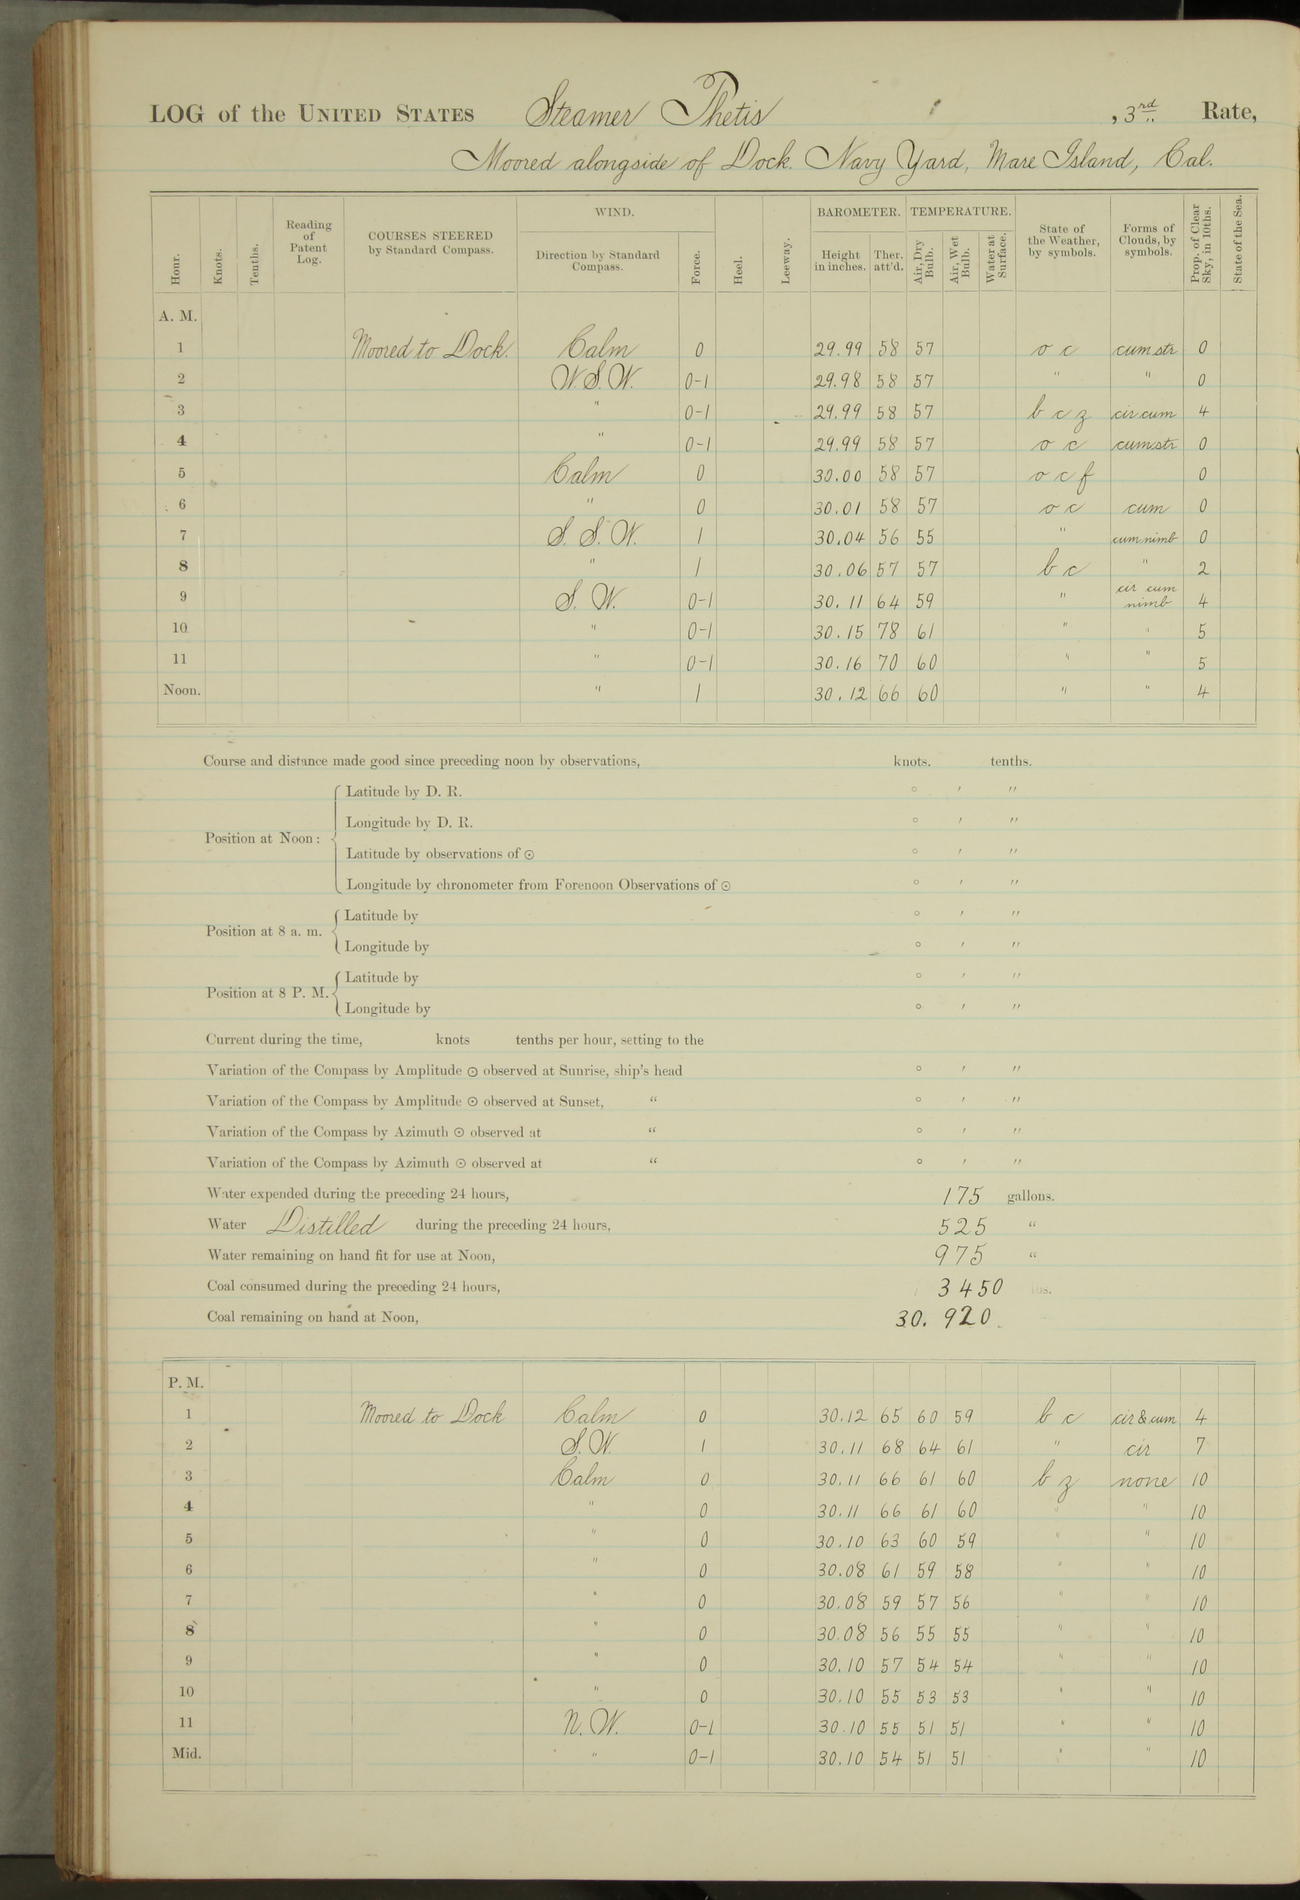 LOG of the UNITED STATES Steamer Thetis , 3rd Rate,
Moored alongside of Dock. Navy Yard, Mare Island, Cal.
Hour. Knots. Tenths. Reading of Patent Log. COURSES STEERED by Standard Compass. WIND. Direction by Standard Compass. Force. Heel. Leeway. BAROMETER. Height in inches. Ther. att'd. TEMPERATURE. Air, Dry Bulb. Air, Wet Bulb. Water at Surface. State of the Weather, by symbols. Forms of Clouds, by symbols. Prop. of Clear Sky, in 10ths. State of the Sea.
A. M.
1 Moored to Dock. Calm 0 29.99 58 57 o c cum str 0
2 W.S.W. 0-1 29.98 58 57 " " 0
3 " 0-1 29.99 58 57 b c z cir cum 4
4 " 0-1 29.99 58 57 o c cum str 0
5 Calm 0 30.00 58 57 o c f 0
6 " 0 30.01 58 57 o c cum 0
7 S. S. W. 1 30.04 56 55 " cum nimb 0
8 " 1 30.06 57 57 b c " 2
9 S. W. 0-1 30.11 64 59 " cir cum nimb 4
10 " 0-1 30.15 78 61 " " 5
11 " 0-1 30.16 70 60 " " 5
Noon. " 1 30.12 66 60 " " 4
Course and distance made good since preceding noon by observations, knots. tenths.
Position at Noon: Latitude by D. R. ° ′ ″
Longitude by D. R. ° ′ ″
Latitude by observations of ⊙ ° ′ ″
Longitude by chronometer from Forenoon Observations of ⊙ ° ′ ″
Position at 8 a. m. Latitude by ° ′ ″
Longitude by ° ′ ″
Position at 8 P. M. Latitude by ° ′ ″
Longitude by ° ′ ″
Current during the time, knots tenths per hour, setting to the
Variation of the Compass by Amplitude ⊙ observed at Sunrise, ship's head ° ′ ″
Variation of the Compass by Amplitude ⊙ observed at Sunset, “ ° ′ ″
Variation of the Compass by Azimuth ⊙ observed at “ ° ′ ″
Variation of the Compass by Azimuth ⊙ observed at “ ° ′ ″
Water expended during the preceding 24 hours, 175 gallons.
Water Distilled during the preceding 24 hours, 525 “
Water remaining on hand fit for use at Noon, 975 “
Coal consumed during the preceding 24 hours, 3450 lbs.
Coal remaining on hand at Noon, 30. 920.
P. M.
1 Moored to Dock Calm 0 30.12 65 60 59 b c cir & cum 4
2 S.W. 1 30.11 68 64 61 " cir 7
3 Calm 0 30.11 66 61 60 b z none 10
4 " 0 30.11 66 61 60 " " 10
5 " 0 30.10 63 60 59 " " 10
6 " 0 30.08 61 59 58 " " 10
7 " 0 30.08 59 57 56 " " 10
8 " 0 30.08 56 55 55 " " 10
9 " 0 30.10 57 54 54 " " 10
10 " 0 30.10 55 53 53 " " 10
11 N. W. 0-1 30.10 55 51 51 " " 10
Mid. " 0-1 30.10 54 51 51 " " 10